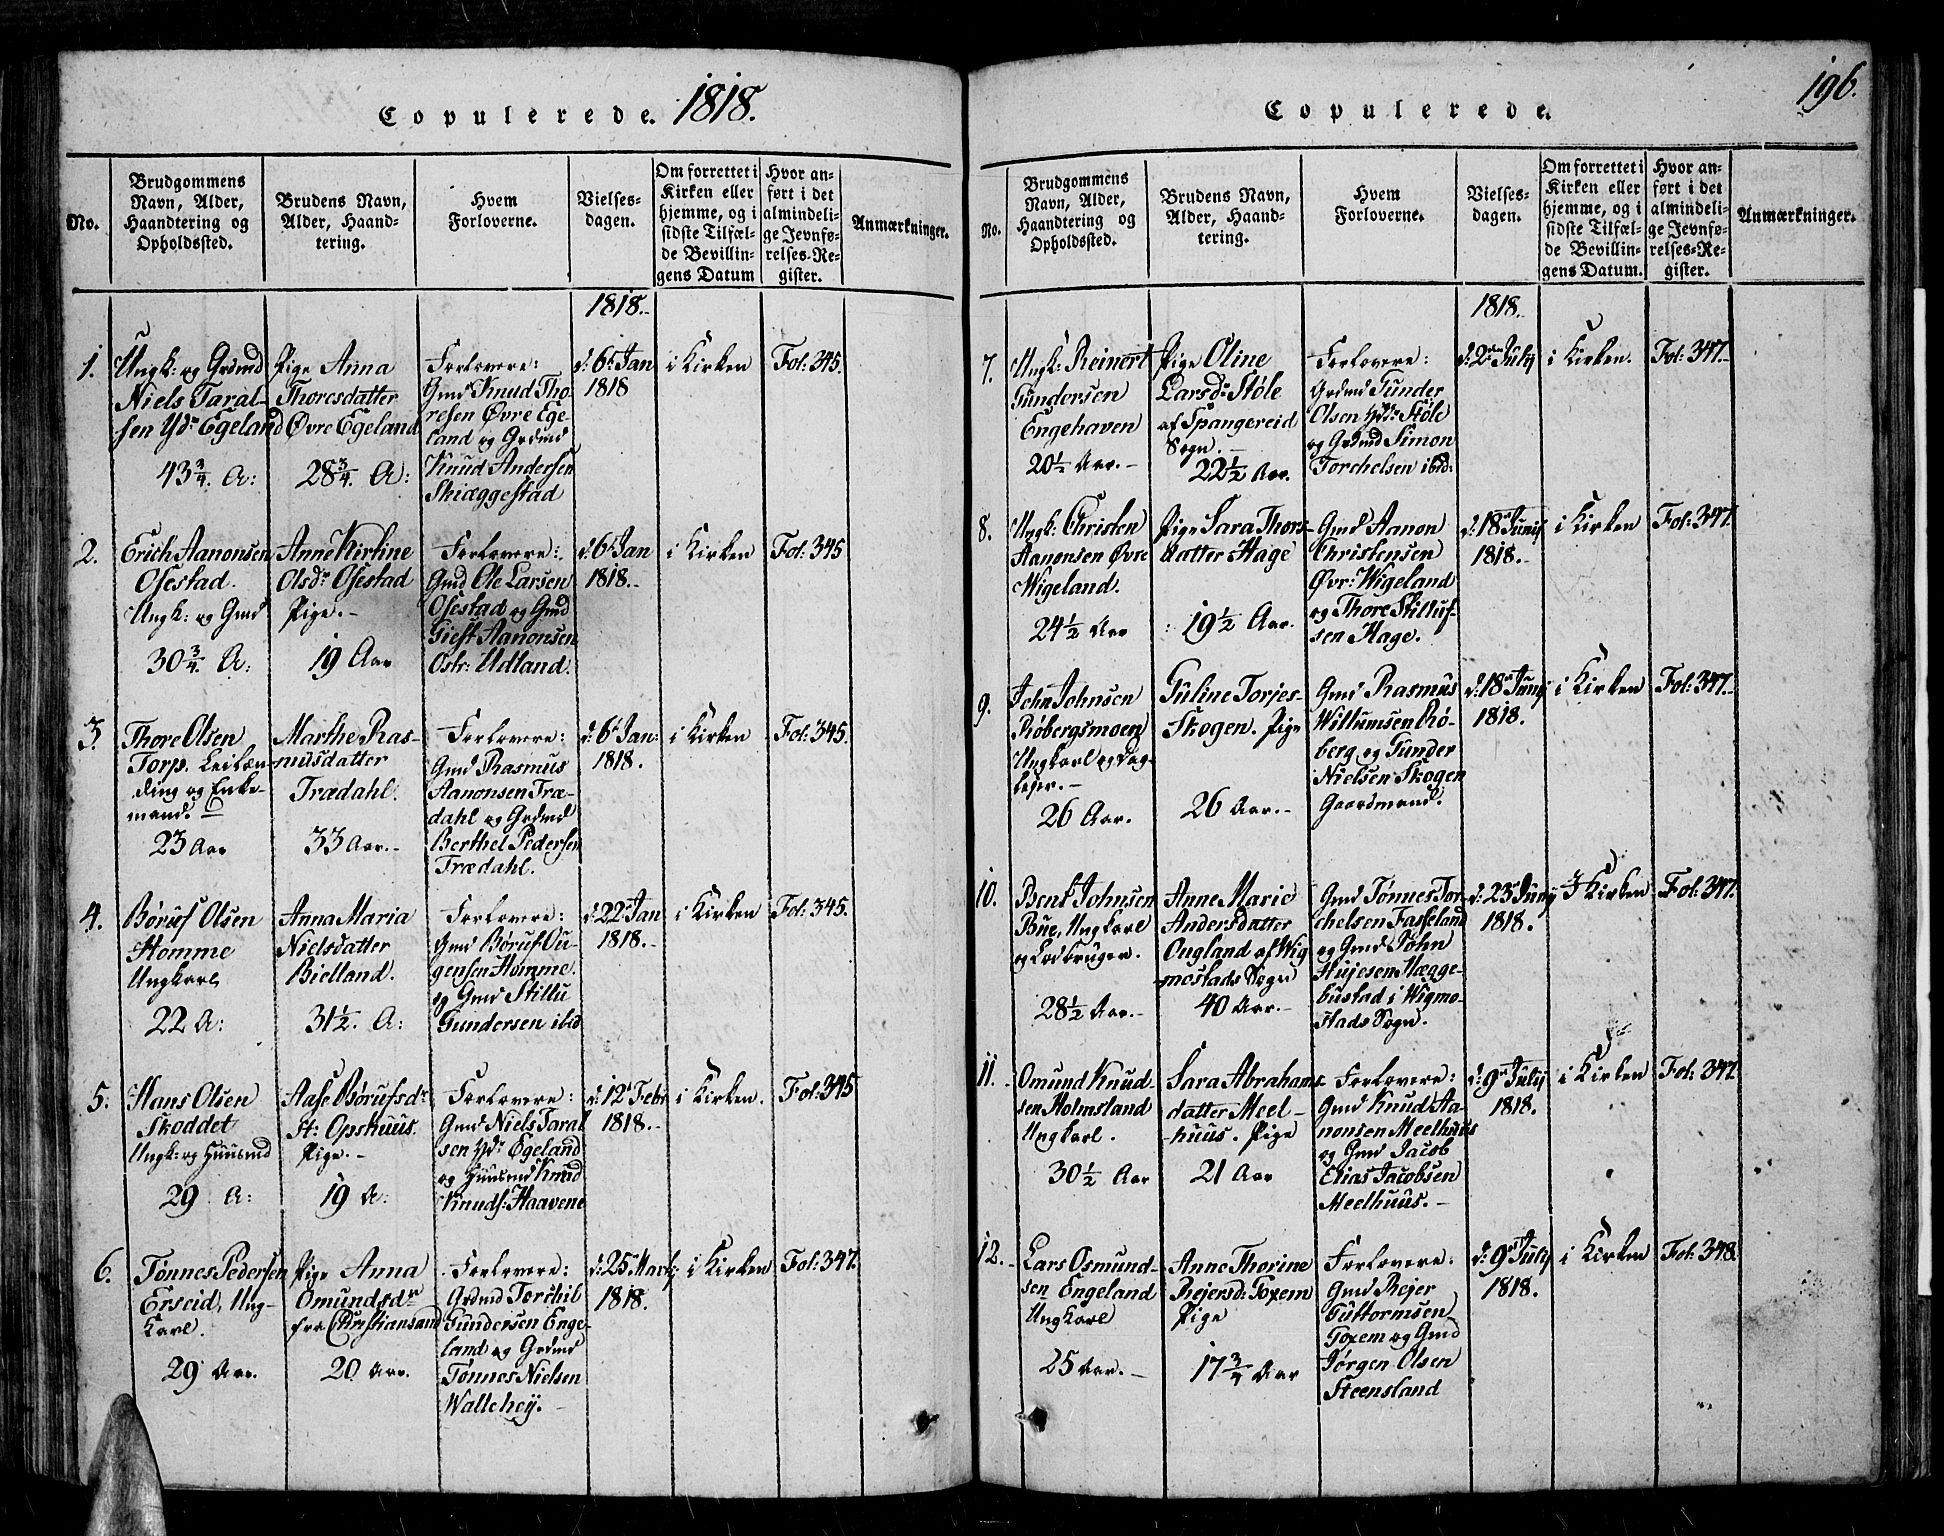 Copulerede. 1818.
No.
Brudgommens
Navn, Alder,
Haandtering og
Opholdssted.
Brudens Navn,
Alder, Haand-
tering.
Hvem
Forloverne.
Vielses-
dagen.
Om forrettet i
Kirken eller
hjemme, og i
sidste Tilfæl-
de Bevillin-
gens Datum
Hvor an-
ført i det
almindeli-
ge Jevnfø-
relses-Re-
gister.
Anmærkninger.
1818.
1.
Ungk: og Grdmd
Niels Taral-
sen Yd: Egeland
43 3/4. A:
Pige Anna
Thoresdatter
Øvre Egeland
28 3/4. A:
Forlovere:
Gmd Knud Tho-
resen Øvre Ege-
land og Grdmd
Knud Andersen
Skiæggestad
d: 6t Jan
1818
i Kirken
Fol: 345.
2.
Erich Aanonsen
Osestad.
Ungk: og Gmd
30 3/4. A:
Anne Kirtine
Olsdr Osestad
Pige. -
19 Aar
Forlovere:
Gmd Ole Larsen
Osestad og Gmd
Giest Aanonsen
Ostr: Udland.
d: 6t Jan
1818. -
i Kirken
Fol: 345
3.
Thore Olsen
Torp. Leilæn-
ding og Enke-
mand. -
23 Aar
Marthe Ras-
musdatter
Trædahl.
33 Aar. -
Forlovere:
Gmd Rasmus
Aanonsen Træ-
dahl og Grdmd
Berthel Pedersen
Trædahl.
d: 6t Jan
1818.
i Kirken
Fol: 345.
4.
Børuf Olsen
Homme
Ungkarl
22 A:
Anna Maria
Nielsdatter
Bielland.
31 1/2. A:
Forlovere:
Gmd Børuf Ou-
gensen Homme.
og Gmd Stillu
Gundersen ibid
d: 22t Jan
1818. -
i Kirken
Fol: 345.
5.
Hans Olsen
Skoddet
Ungk: og Huusmd
29 A:
Aase Børufsdr
St: Opshuus.
Pige. -
19 A:
Forlovere:
Gmd Niels Taral
sen Yd: Egeland
og Huusmd Knud
Knuds: Haavene
d: 12t Febr
1818. -
i Kirken.
Fol: 345
6.
Tønnes Pedersen
Erseid, Ung-
karl.
29 Aar.
Pige Anna
Omundsdr
fra Christiansand
20 Aar.
Forlovere:
Grdmd Torchil
Gundersen Enge-
land og Grdmd
Tønnes Nielsen
Wallehey. -
d: 25t Martj
1818.
i Kirken
Fol: 347.
Copulerede.
196.
No.
Brudgommens
Navn, Alder,
Haandtering og
Opholdssted.
Brudens Navn,
Alder, Haand-
tering.
Hvem
Forloverne.
Vielses-
dagen.
Om forrettet i
Kirken eller
hjemme, og i
sidste Tilfæl-
de Bevillin-
gens Datum.
Hvor an-
ført i det
almindeli-
ge Jevnfø-
relses-Re-
gister.
Anmærkninger.
1818.
7.
Ungk: Reinert
Gundersen
Engehaven
20 1/2 Aar. -
Pige Oline
Larsd: Støle
af Spangereid
Sogn. -
22 1/2 Aar.
Forlovere:
Grdmd Gunder
Olsen Ydr: Støle
og Grdmd Simon
Torchelsen ibid:
d: 2den July
i Kirken.
Fol: 347. -
8.
Ungk: Christen
Aanonsen Øvre
Wigeland.
24 1/2 Aar
Pige Sara Thors-
datter Hage
19 1/2 Aar.
Gmd Aanon
Christensen
Øvr: Wigeland
og Thore Stilluf-
sen Hage.
d: 18t Junij
1818. -
i Kirken
Fol: 347.
9.
John Johnsen
Røbergsmoen
Ungkarl og Dag-
lejer. -
26 Aar.
Guline Torjes-
Skogen. Pige
26 Aar. -
Gmd Rasmus
Willumsen Rø-
berg og Gunder
Nielsen Skogen
Gaardmand.
d: 18t Junij
1818.
i Kirken
Fol: 347. -
10.
Bent Johnsen
Bue, Ungkarl
og Lodbruger.
28 1/2 Aar. -
Anne Marie
Andersdatter
Ougland af Wig
mostads Sogn
40 Aar. -
Gmd Tønnes Tor-
chelsen Faseland
og Gmd John
Hujesen Hægge-
bustad i Wigmo-
stads Sogn.
d: 23t Junij
1818.
i Kirken
Fol: 347.
11.
Omund Knud-
sen Holmsland
Ungkarl.
30 1/2 Aar
Sara Abrahams-
datter Meel-
huus. Pige
21 Aar
Forlovere:
Gmd Knud Aa-
nonsen Meelhuus
og Gmd Jacob
Elias Jacobsen
Meelhuus. -
d: 9t Julij
1818.
i Kirken
Fol: 347.
12.
Lars Osmund-
sen Engeland
Ungkarl
25 Aar. -
Anne Thorine
Rejersd: Foxem
Pige
17 3/4 Aar
Forlovere:
Gmd Rejer
Guttormsen
Foxem og Gmd
Jørgen Olsen
Steensland
d: 9t Julij
1818.
i Kirken
Fol: 348.